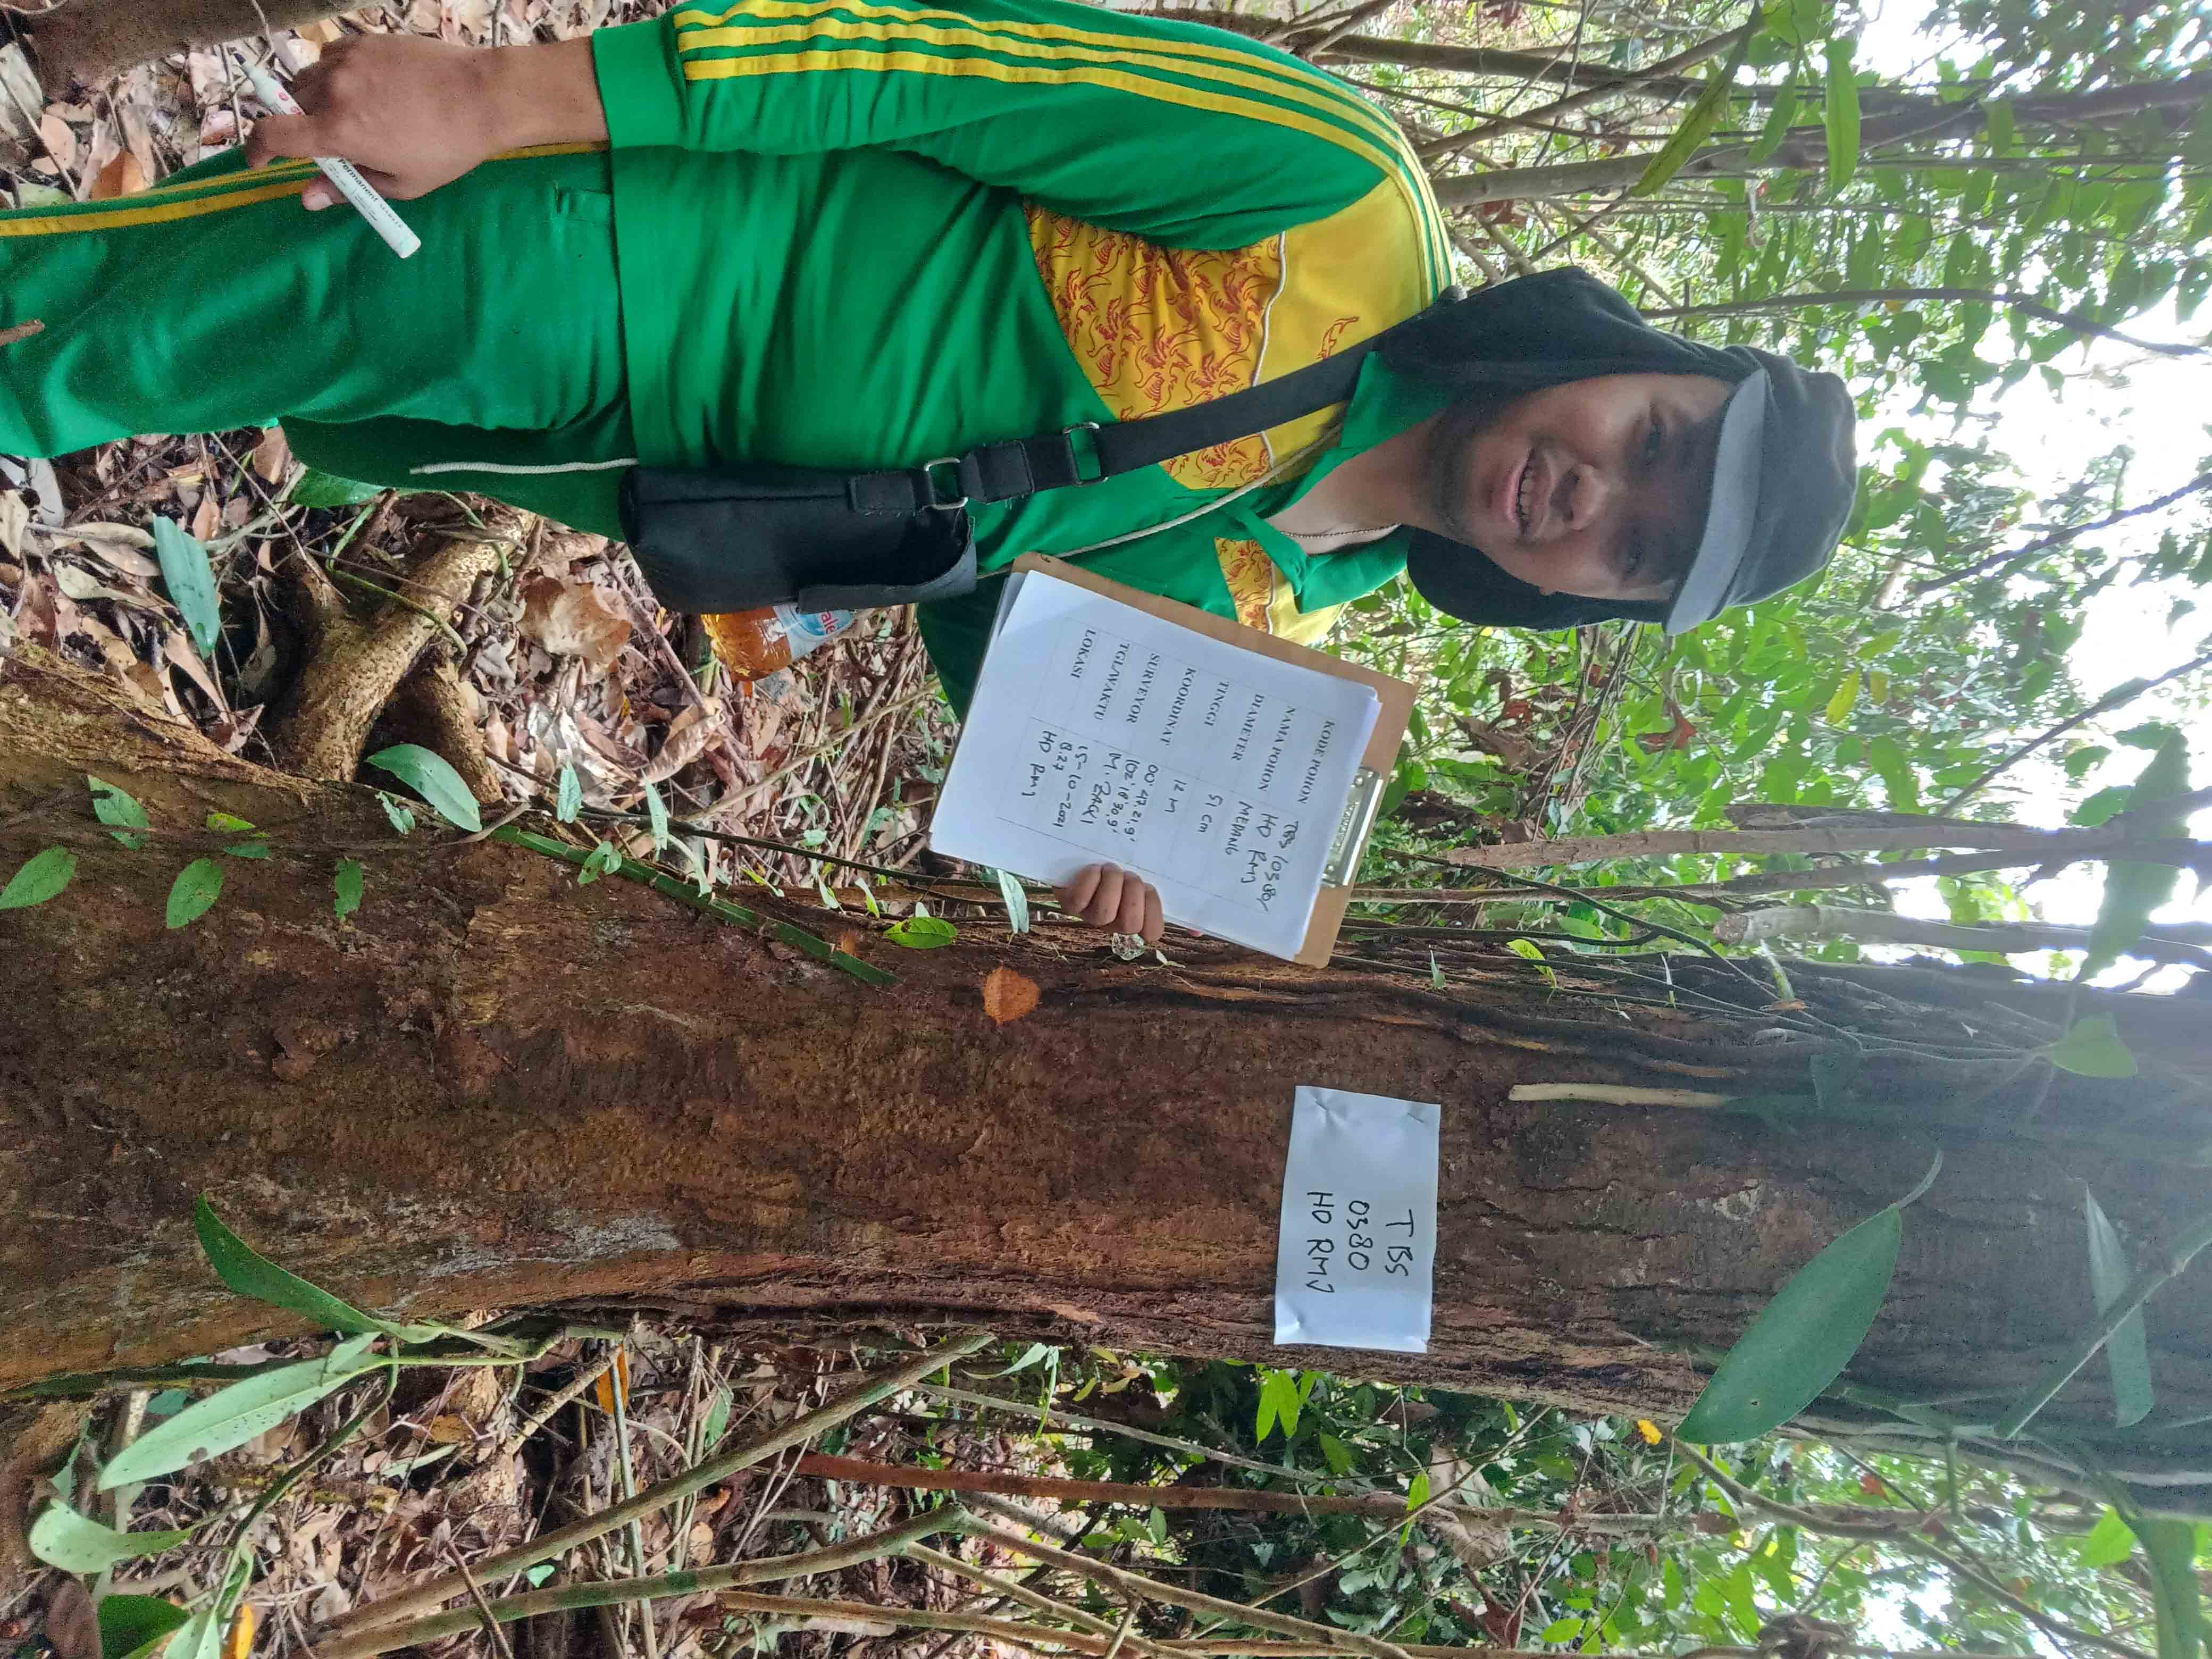 TBS
0380
HD RMJ
KODE POHON TBS/0380/
HD RMJ
NAMA POHON MEDANG
DIAMETER 51 cm
TINGGI 12 M
KOORDINAT 00°47'21,9'
102°18'30,9'
SURVEYOR M. ZAQI
TGL/WAKTU 15-10-2021
8.27
LOKASI HD RMJ
ale
Permanent MARKER